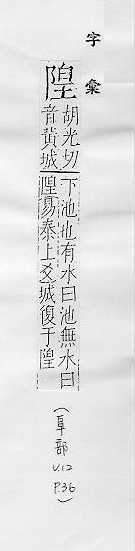 字彙
隍
胡光切
音黃城
下池也有水曰池無水曰
隍易泰上爻城復于隍
(阜部
V.12
P.36)